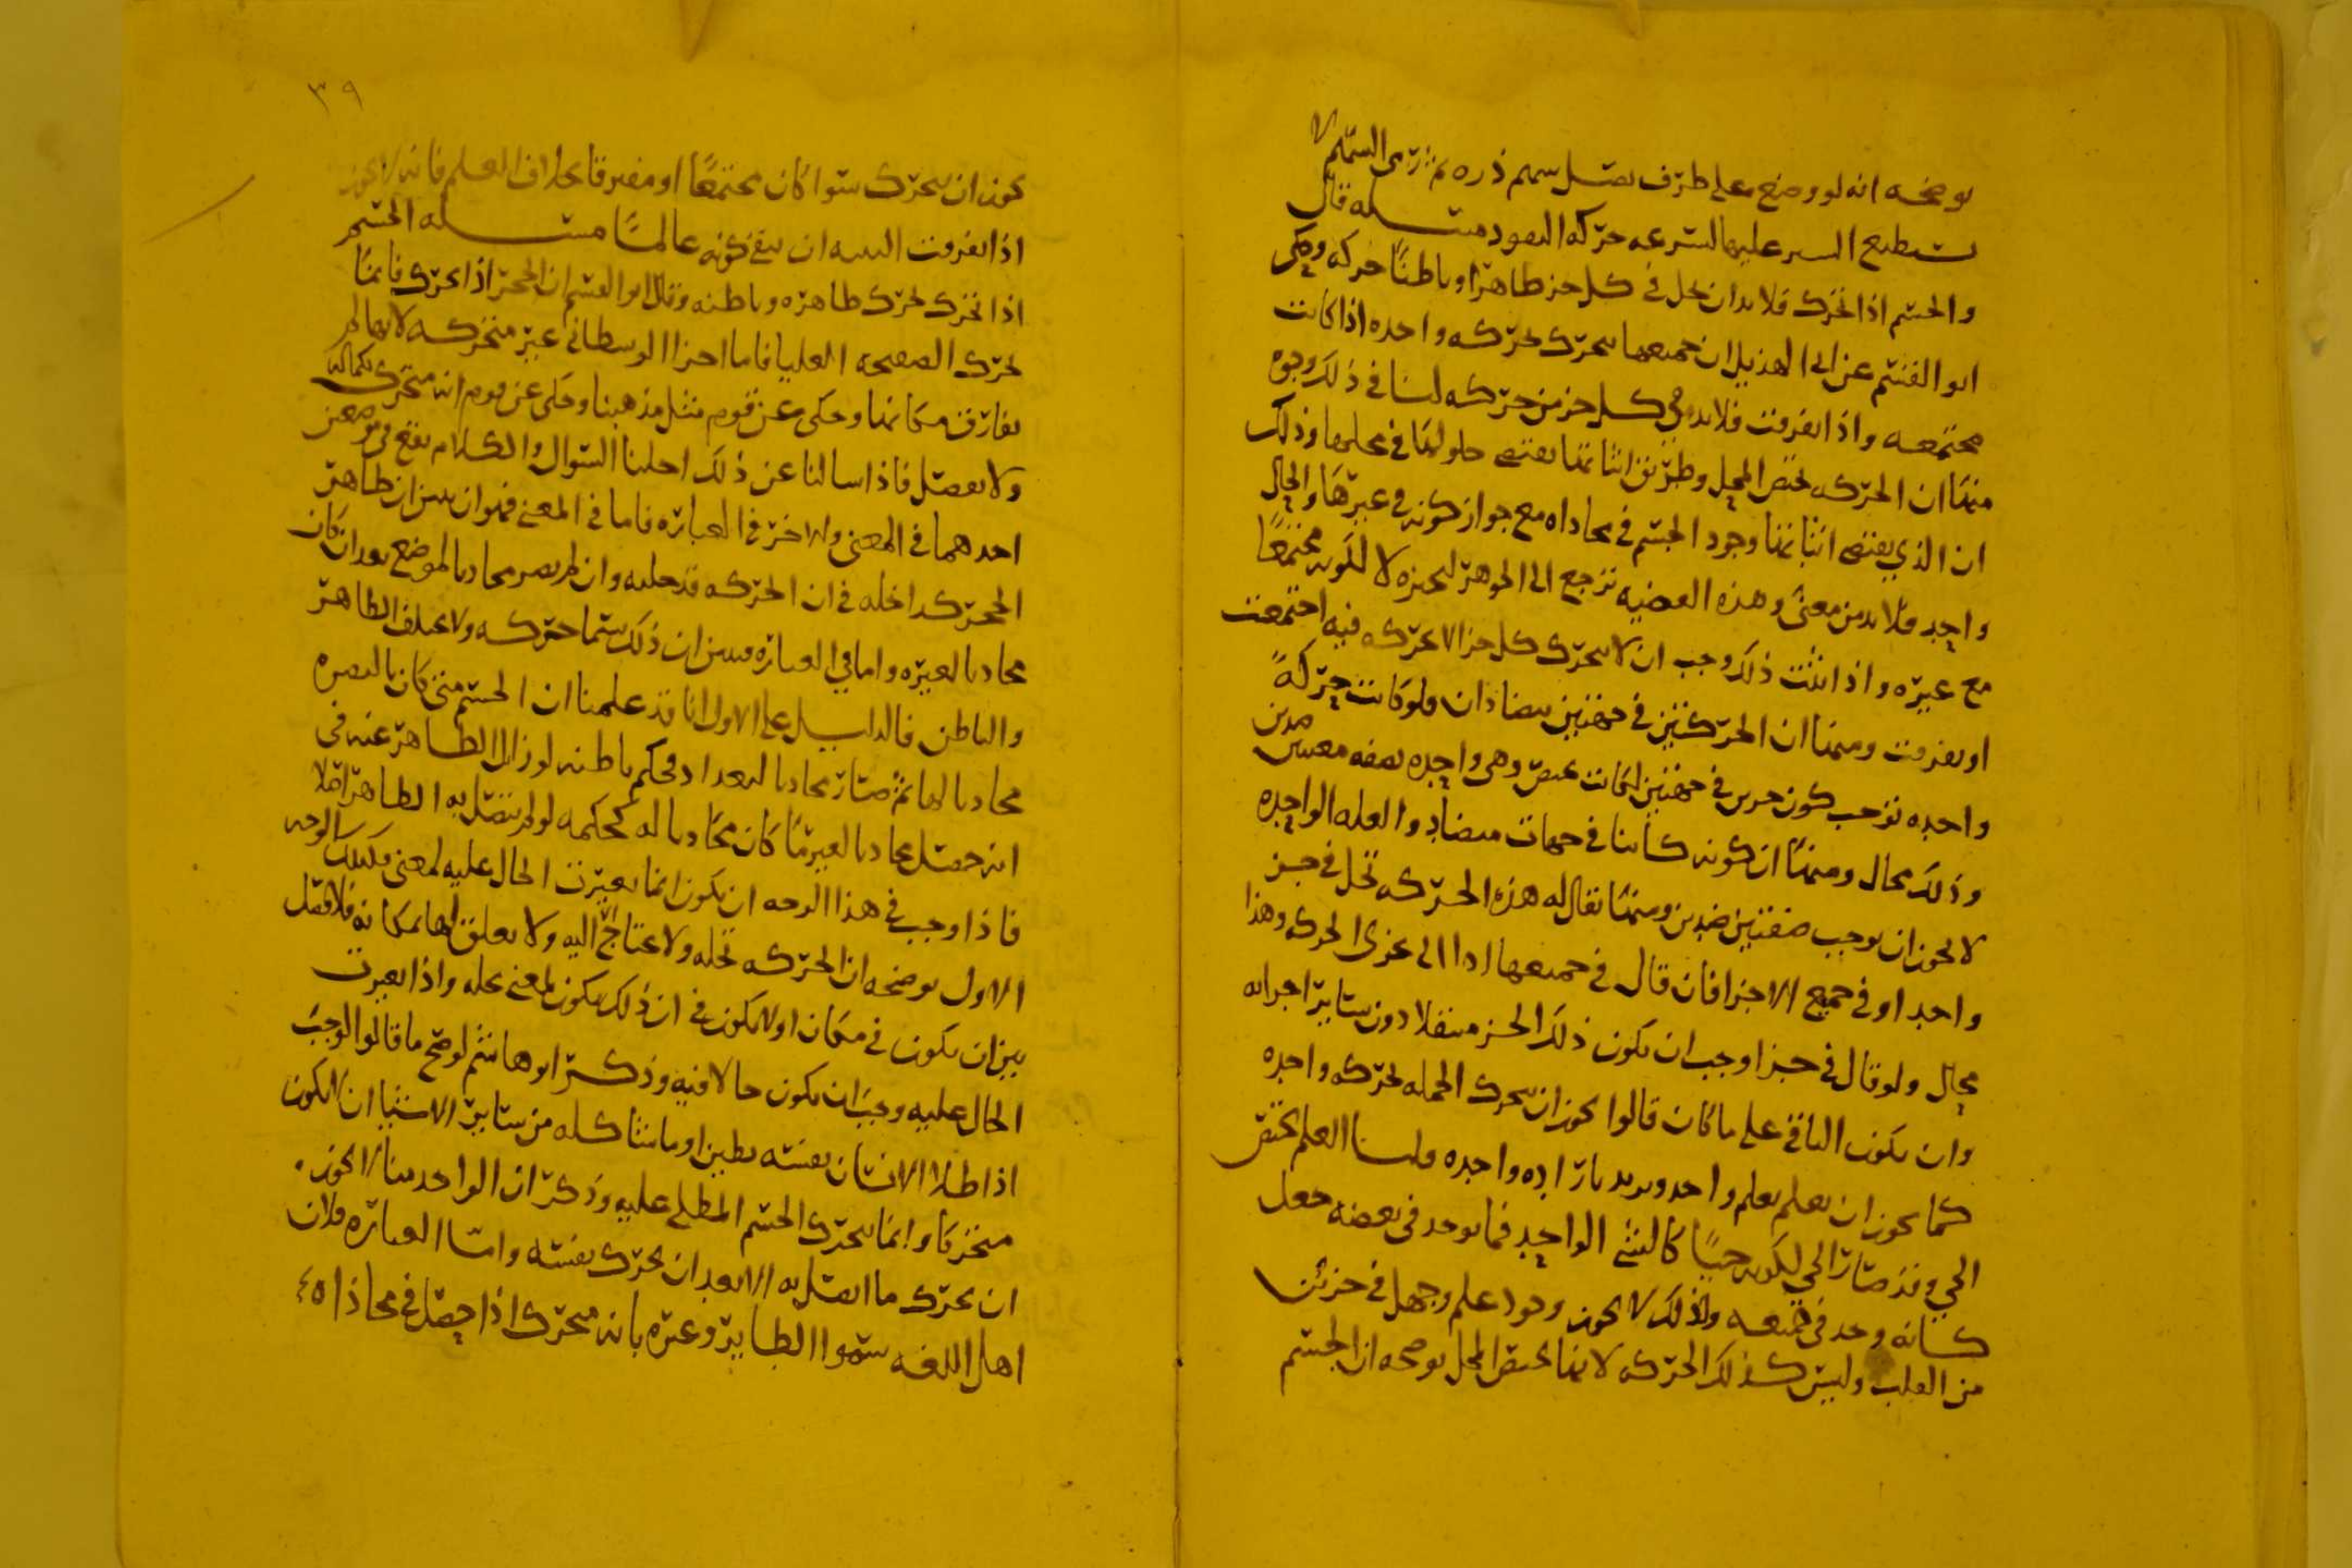 يوضحه انه لو وضع على طرف نصل سهم ذره ثم رمى السهم لا
تستطيع السير عليها لسرعه حركه العود مسله قال
والجسم اذا تحرك فلا بد ان يحل في كل جز ظاهرا وباطنا حركه وحكى
ابو القسم عن ابي الهذيل ان جميعها يتحرك بحركه واحده اذا كانت
مجتمعه واذا افترقت فلا بد في كل جز من حركه لنا في ذلك وجوه
منها ان الحركه تختص المحل وطريق اثباتها يقتضي حلولها في محلها وذلك
ان الذي يقتضي اثباتها وجود الجسم في محاداه مع جواز كونه في غيرها والحال
واحد فلا بد من معنى وهذه القضيه ترجع الى الجوهر لتحيزه لا لكونه مجتمعا
مع غيره واذا اثبت ذلك وجب ان لا يتحرك كل جز الا بحركه فيه اجتمعت
او تفرقت ومنها ان الحركتين في جهتين يتضادان ولو كانت حركةً
واحده توجب كون جزين في جهتين لكانت بمعنى وهي واحده بصفه معنيين ضدين
وذلك محال ومنها ان كونه كاينا في جهات متضاد والعله الواحده
لا يجوز ان يوجب صفتين ضدين ومنها يقال له هذه الحركه تحل في جز
واحد او في جميع الاجزا فان قال في جميعها ادا الى تجزي الحركه وهذا
محال ولو قال في جز اوجب ان يكون ذلك الجز منتقلا دون ساير اجزايه
وان يكون الباقي على ما كان قالوا يجوز ان يتحرك الجمله بحركه واحده
كما يجوز ان يعلم بعلم واحد ويريد بارادة واحده قلنا العلم يختص
الحي وقد صار الحي لكونه حيًا كالشي الواحد فما يوجد في بعضه جعل
كانه وجد في جميعه ولذلك لا يجوز وجود علم وجهل في جزئين
من القلب وليس كذلك الحركه لانها تختص المحل يوضحه ان الجسم
٣٩
يجوز ان يتحرك سوا كان مجتمعًا او مفترقا بخلاف العلم فانه لا يجوز
اذا تفرقت البنيه ان يبقى كونه عالمًا مسله الجسم
اذا تحرك تحرك ظاهره وباطنه وقال ابو القسم ان الحجر اذا تحرك فانما
تحرك الصفحه العليا فاما اجزا الوسطانى غير متحركه لانها لم
تفارق مكانها وحكى عن قوم مثل مذهبنا وحكى عن قوم انه متحرك بكماله
ولا يفصل فاذا سالنا عن ذلك احلنا السوال والكلام يقع في موضعين
احدهما في المعنى والاخر في العباره فاما في المعنى فهو ان يبين ان ظاهر
الحجر كداخله في ان الحركه قد حلته وان لم يصر محاديا لموضع بعد ان كان
محاديا لغيره واما في العباره فيبين ان ذلك يسما حركه ولا يختلف الظاهر
والباطن فالدليل على الاول انا قد علمنا ان الجسم متى كان بالبصره
محاديا لها ثم صار محاديا لبغداد فحكم باطنه لو زال الظاهر عنه في
انه حصل محاديا لغير ما كان محاديا له كحكمه لو لم يتصل به الظاهر اولا
فاذا وجب في هذا الوجه ان يكون انما تغيرت الحال عليه لمعنى فكذلك الوجه
الاول يوضحه ان الحركه تحله ولا يحتاج اليه ولا تعلق لها بمكانه فلا فصل
بين ان يكون في مكان او لا يكون في ان ذلك يكون لمعنى يحله واذا تغيرت
الحال عليه وجب ان يكون حالا فيه وذكر ابو هاشم لو صح ما قالوا لوجب
اذا طلا الانسان نفسه بطين او ما شاكله من ساير الاشيا ان لا يكون
متحركا وانما يتحرك الجسم المطلي عليه وذكر ان الواحد منا لا يجوز
ان يحرك ما اتصل به الا بعد ان يحرك نفسه واما العباره فلان
اهل اللغه سموا الطاير وغيره بانه متحرك اذا حصل في محاذاه